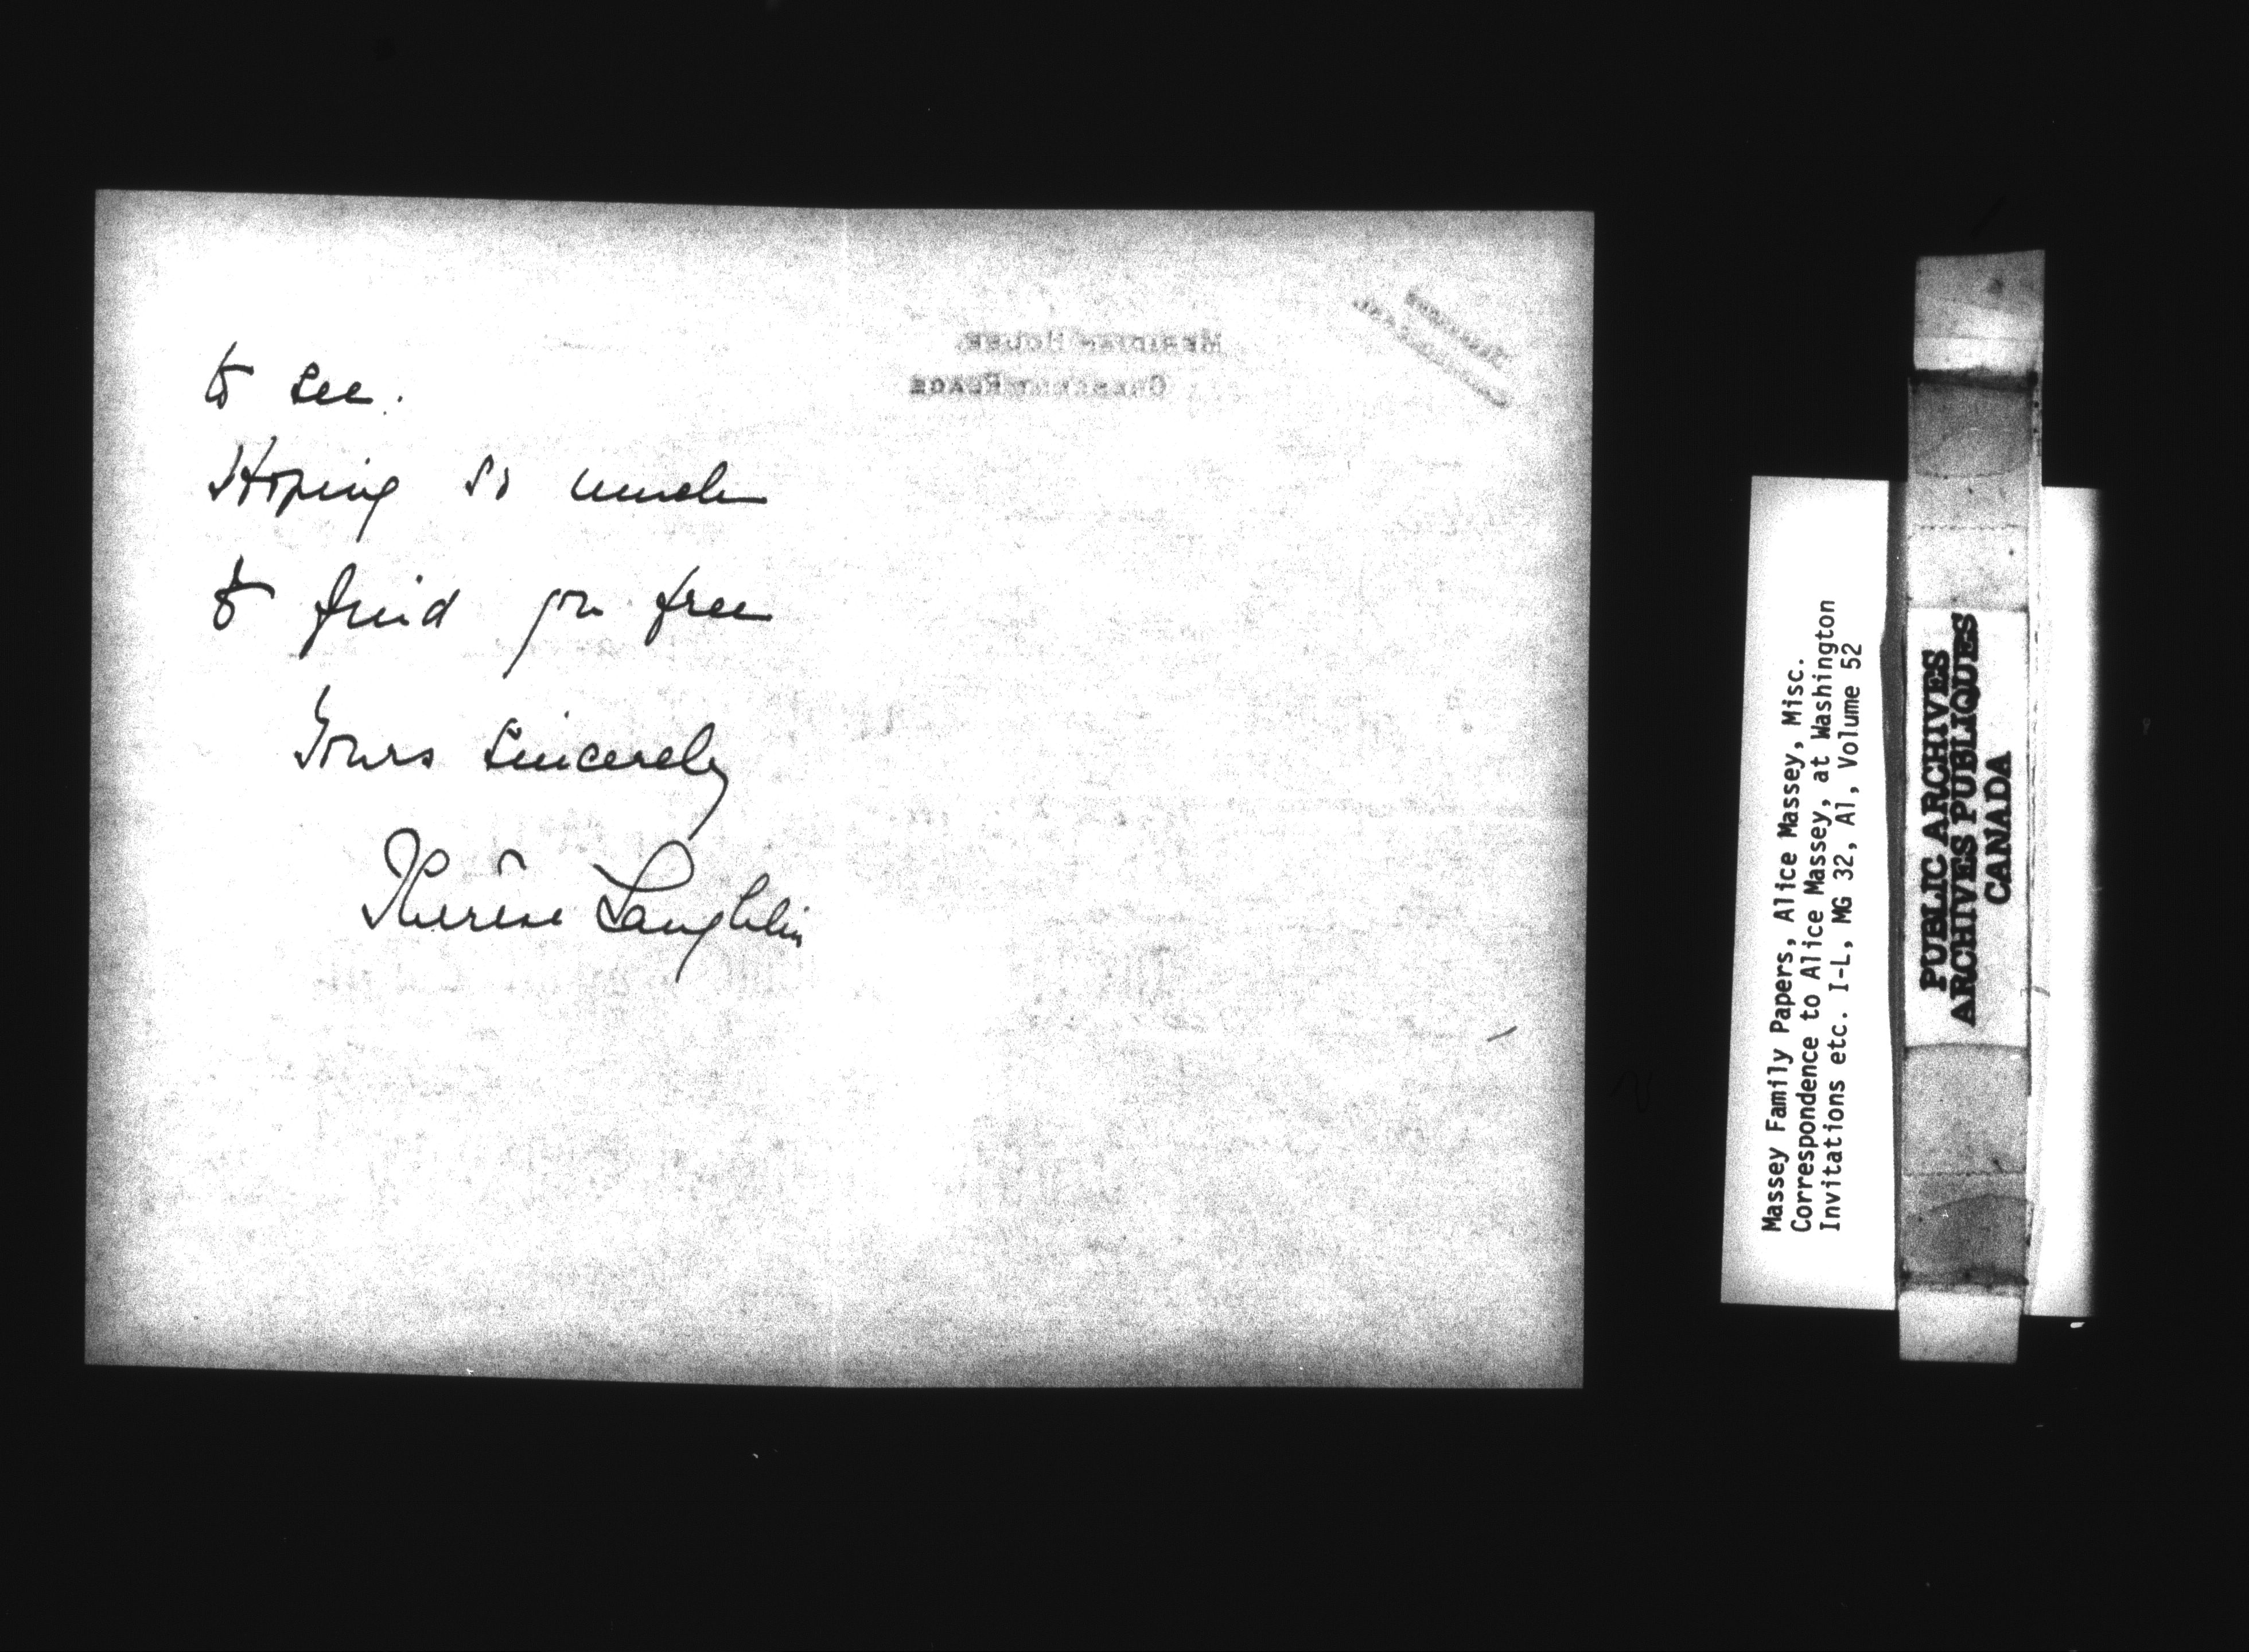 to see.
Hoping so much
to find you free
Yours sincerely
Thérèse Laughlin
MERIDIAN HOUSE
CRESCENT PLACE
Massey Family Papers, Alice Massey, Misc.
Correspondence to Alice Massey, at Washington
Invitations etc. I-L, MG 32, A1, Volume 52
PUBLIC ARCHIVES
ARCHIVES PUBLIQUES
CANADA